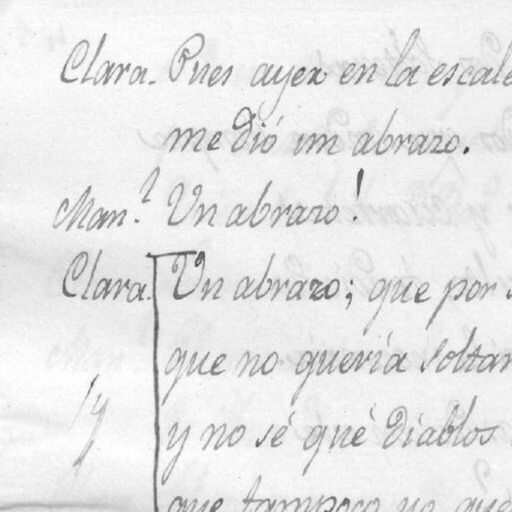 Clara. Pues ayer en la escale
me dió un abrazo.
Man.l Un abrazo!
Clara. Un abrazo; que por s
que no quería soltar
y no sé qué diablos
que tampoco yo que